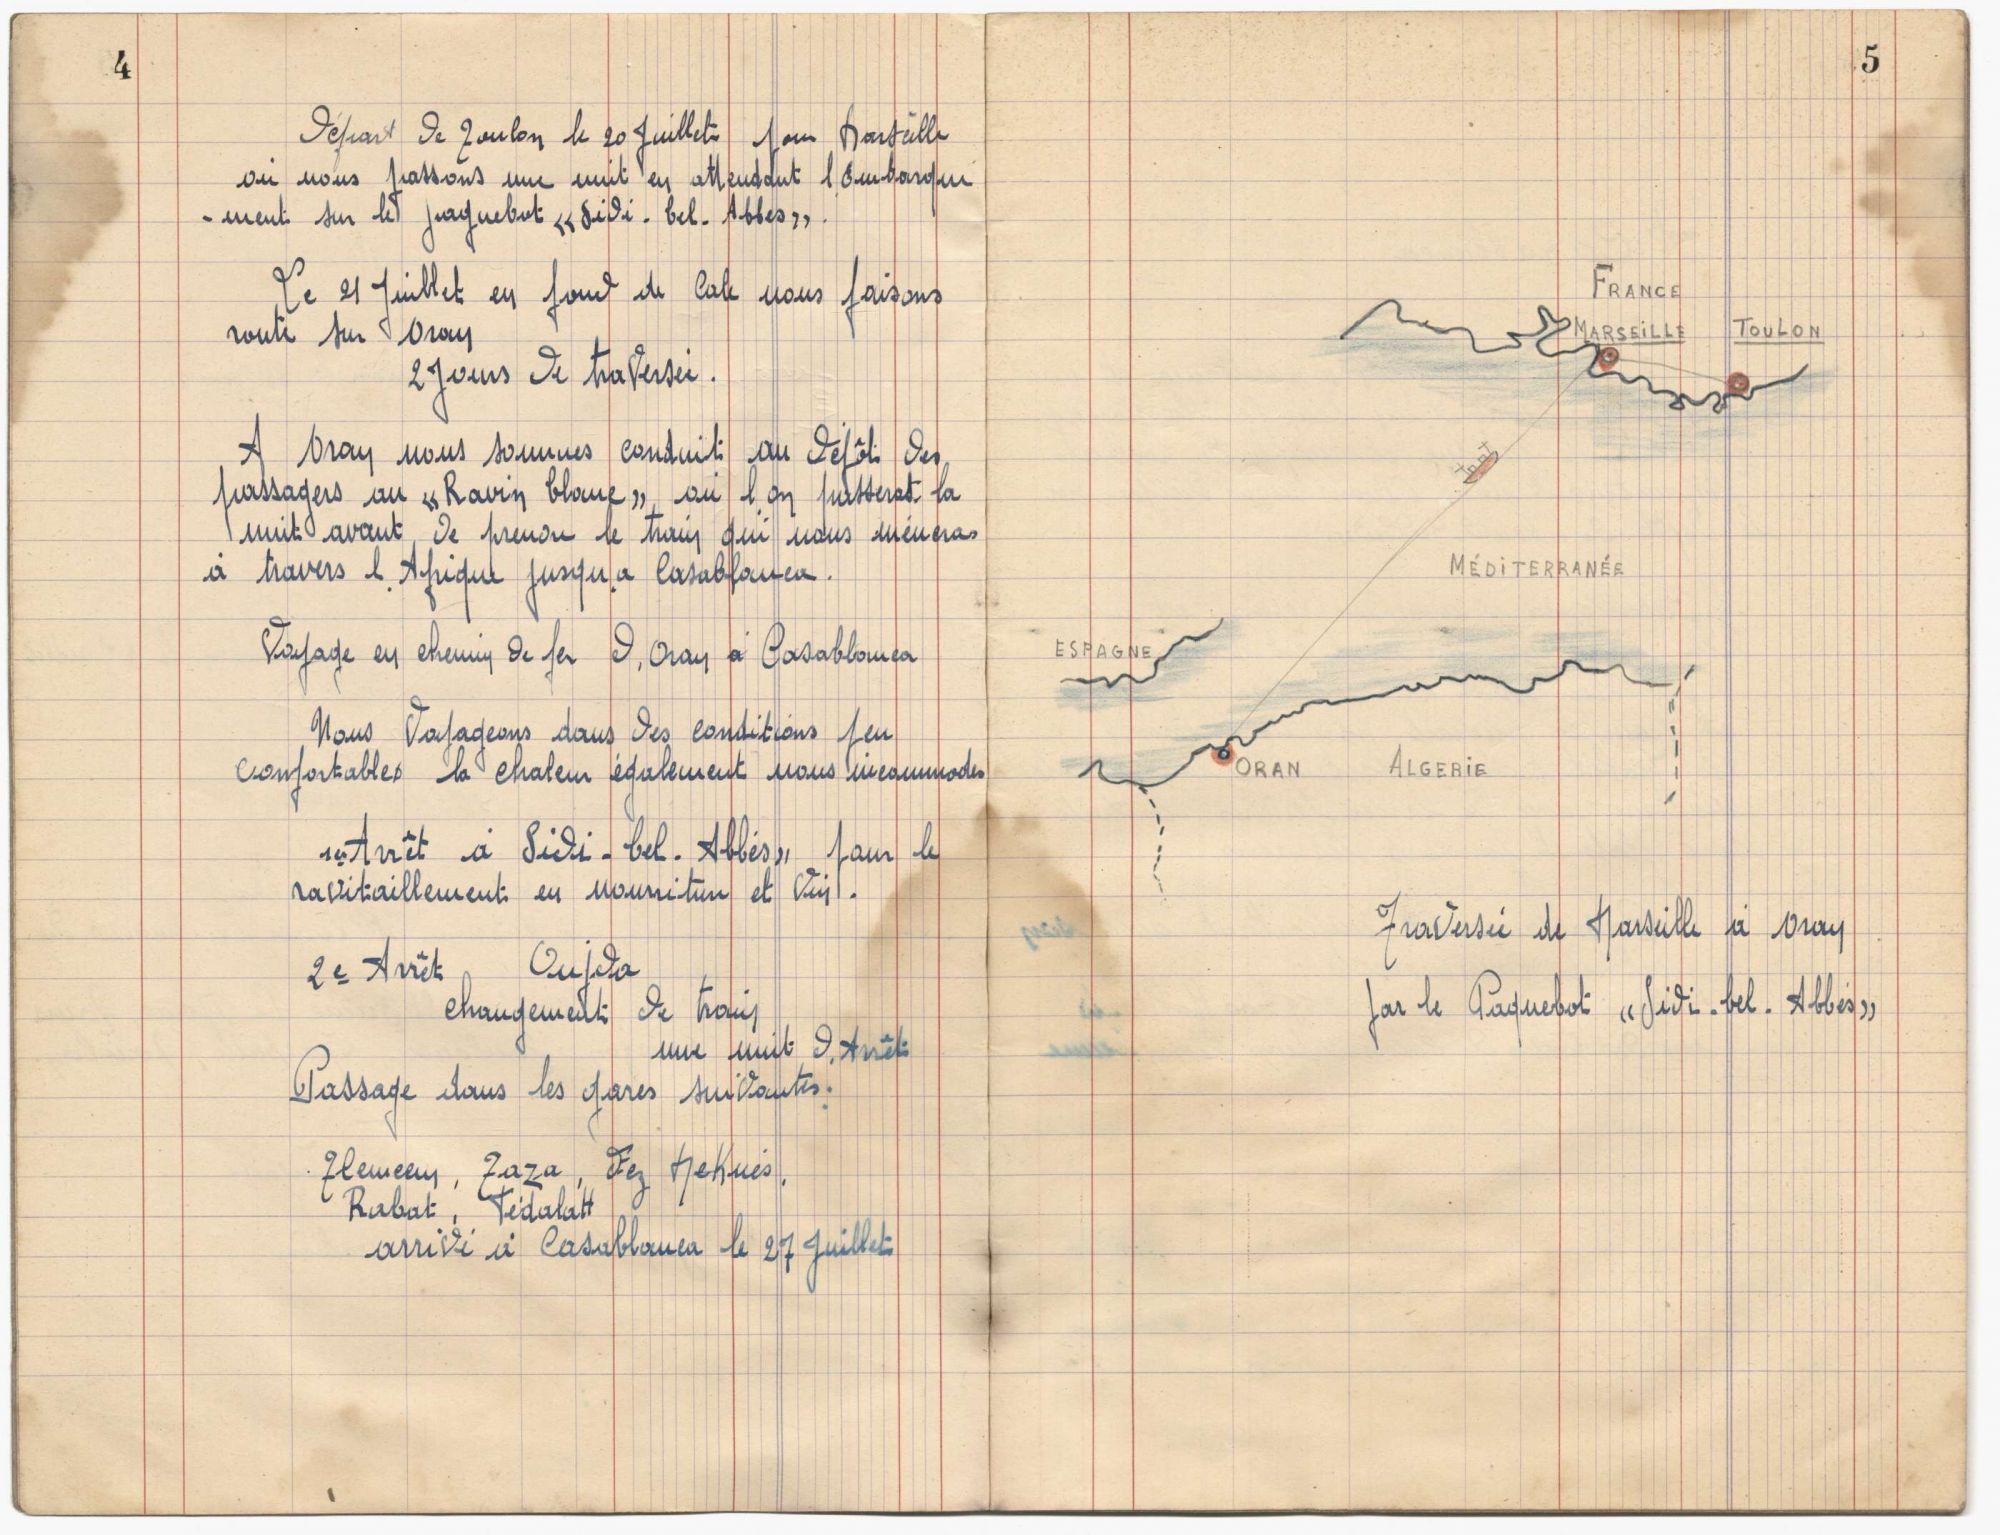 4
Départ de Toulon le 20 Juillet pour Marseille
où nous passons une nuit en attendant l'Embarque
-ment sur le paquebot «Sidi-bel-Abbes».
Le 21 Juillet en fond de Cale nous faisons
route sur Oran
2 Jours de traversée.
A Oran nous sommes conduit au Dépôt des
passagers au «Ravin blanc», où l'on passerat la
nuit avant de prendre le train qui nous mèneras
à travers l'Afrique jusqu'a Casablanca.
Voyage en chemin de fer d'Oran à Casablanca
Nous Voyageons dans des conditions peu
Confortables la chaleur également nous incommodes
1er Arrêt à Sidi-bel-Abbés» pour le
ravitaillement en nourriture et Vin.
2e Arrêt Oujda
changement de train
une nuit d'Arrêt
Passage dans les gares suivantes:
Tlemcen, Taza, Fez Meknés,
Rabat, Fédalah
arrivé à Casablanca le 27 Juillet
5
FRANCE
MARSEILLE TOULON
MÉDITERRANÉE
ESPAGNE
ORAN ALGERIE
Traversée de Marseille à Oran
par le Paquebot «Sidi-bel-Abbés»